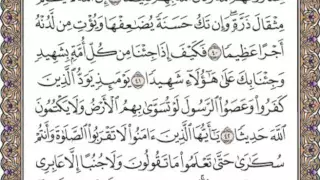 مِثْقَالَ ذَرَّةٍ وَإِن تَكُ حَسَنَةً يُضَٰعِفْهَا وَيُؤْتِ مِن لَّدُنْهُ
أَجْرًا عَظِيمًا ٤٠ فَكَيْفَ إِذَا جِئْنَا مِن كُلِّ أُمَّةٍۭ بِشَهِيدٍ
وَجِئْنَا بِكَ عَلَىٰ هَٰٓؤُلَآءِ شَهِيدًا ٤١ يَوْمَئِذٍ يَوَدُّ ٱلَّذِينَ
كَفَرُوا۟ وَعَصَوُا۟ ٱلرَّسُولَ لَوْ تُسَوَّىٰ بِهِمُ ٱلْأَرْضُ وَلَا يَكْتُمُونَ
ٱللَّهَ حَدِيثًا ٤٢ يَٰٓأَيُّهَا ٱلَّذِينَ ءَامَنُوا۟ لَا تَقْرَبُوا۟ ٱلصَّلَوٰةَ وَأَنتُمْ
سُكَٰرَىٰ حَتَّىٰ تَعْلَمُوا۟ مَا تَقُولُونَ وَلَا جُنُبًا إِلَّا عَابِرِى